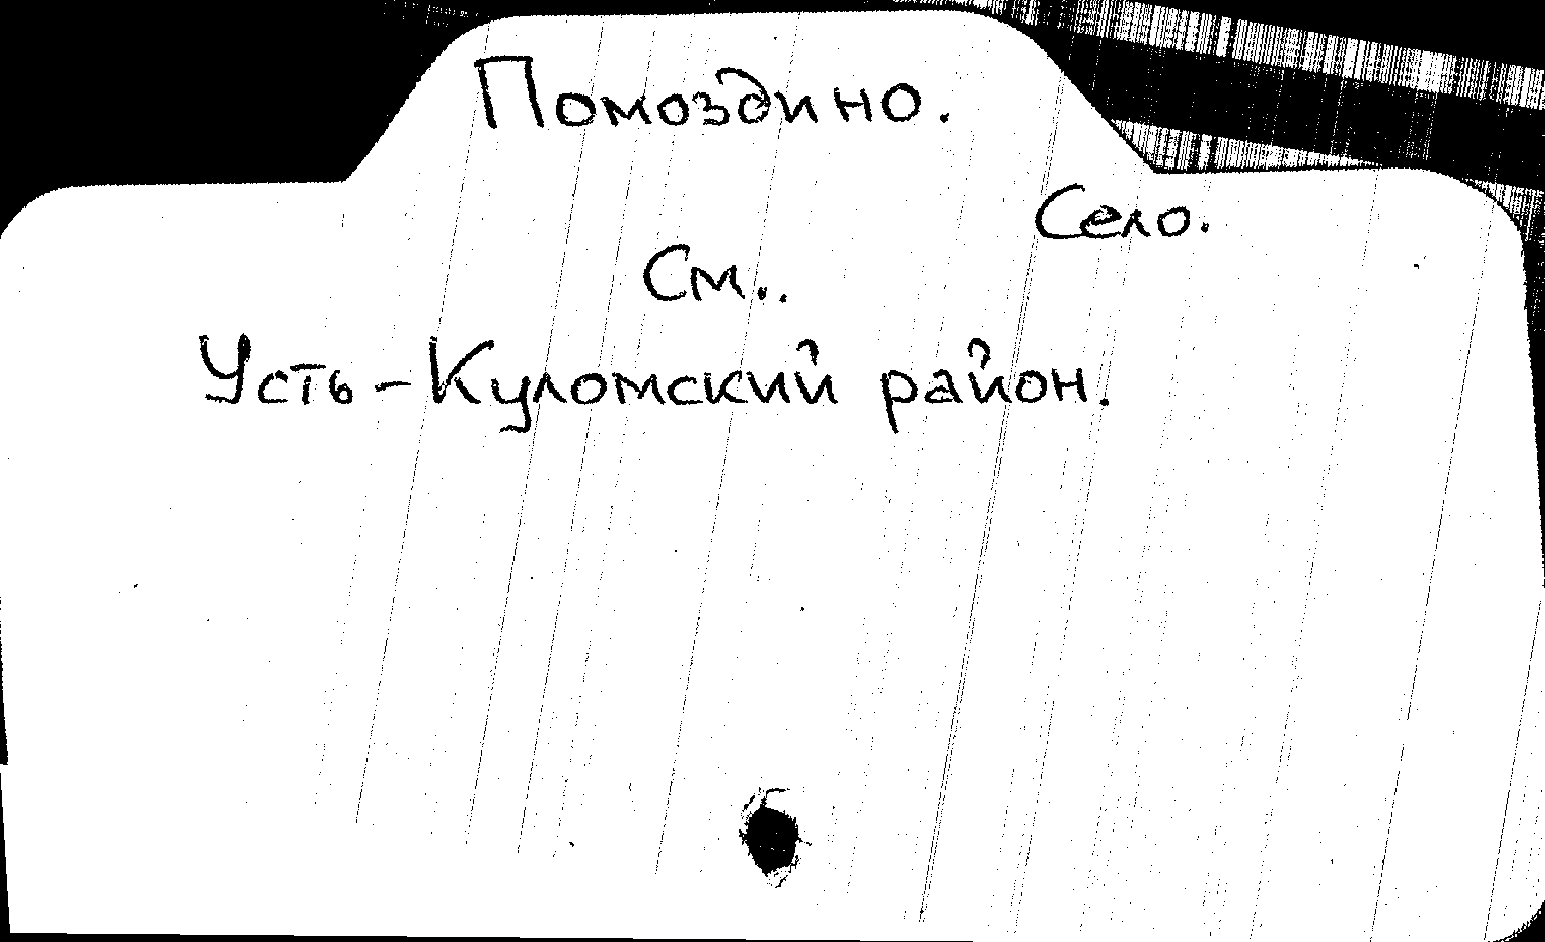 Помоздино.
Село.
См..
Усть-Куломский район.